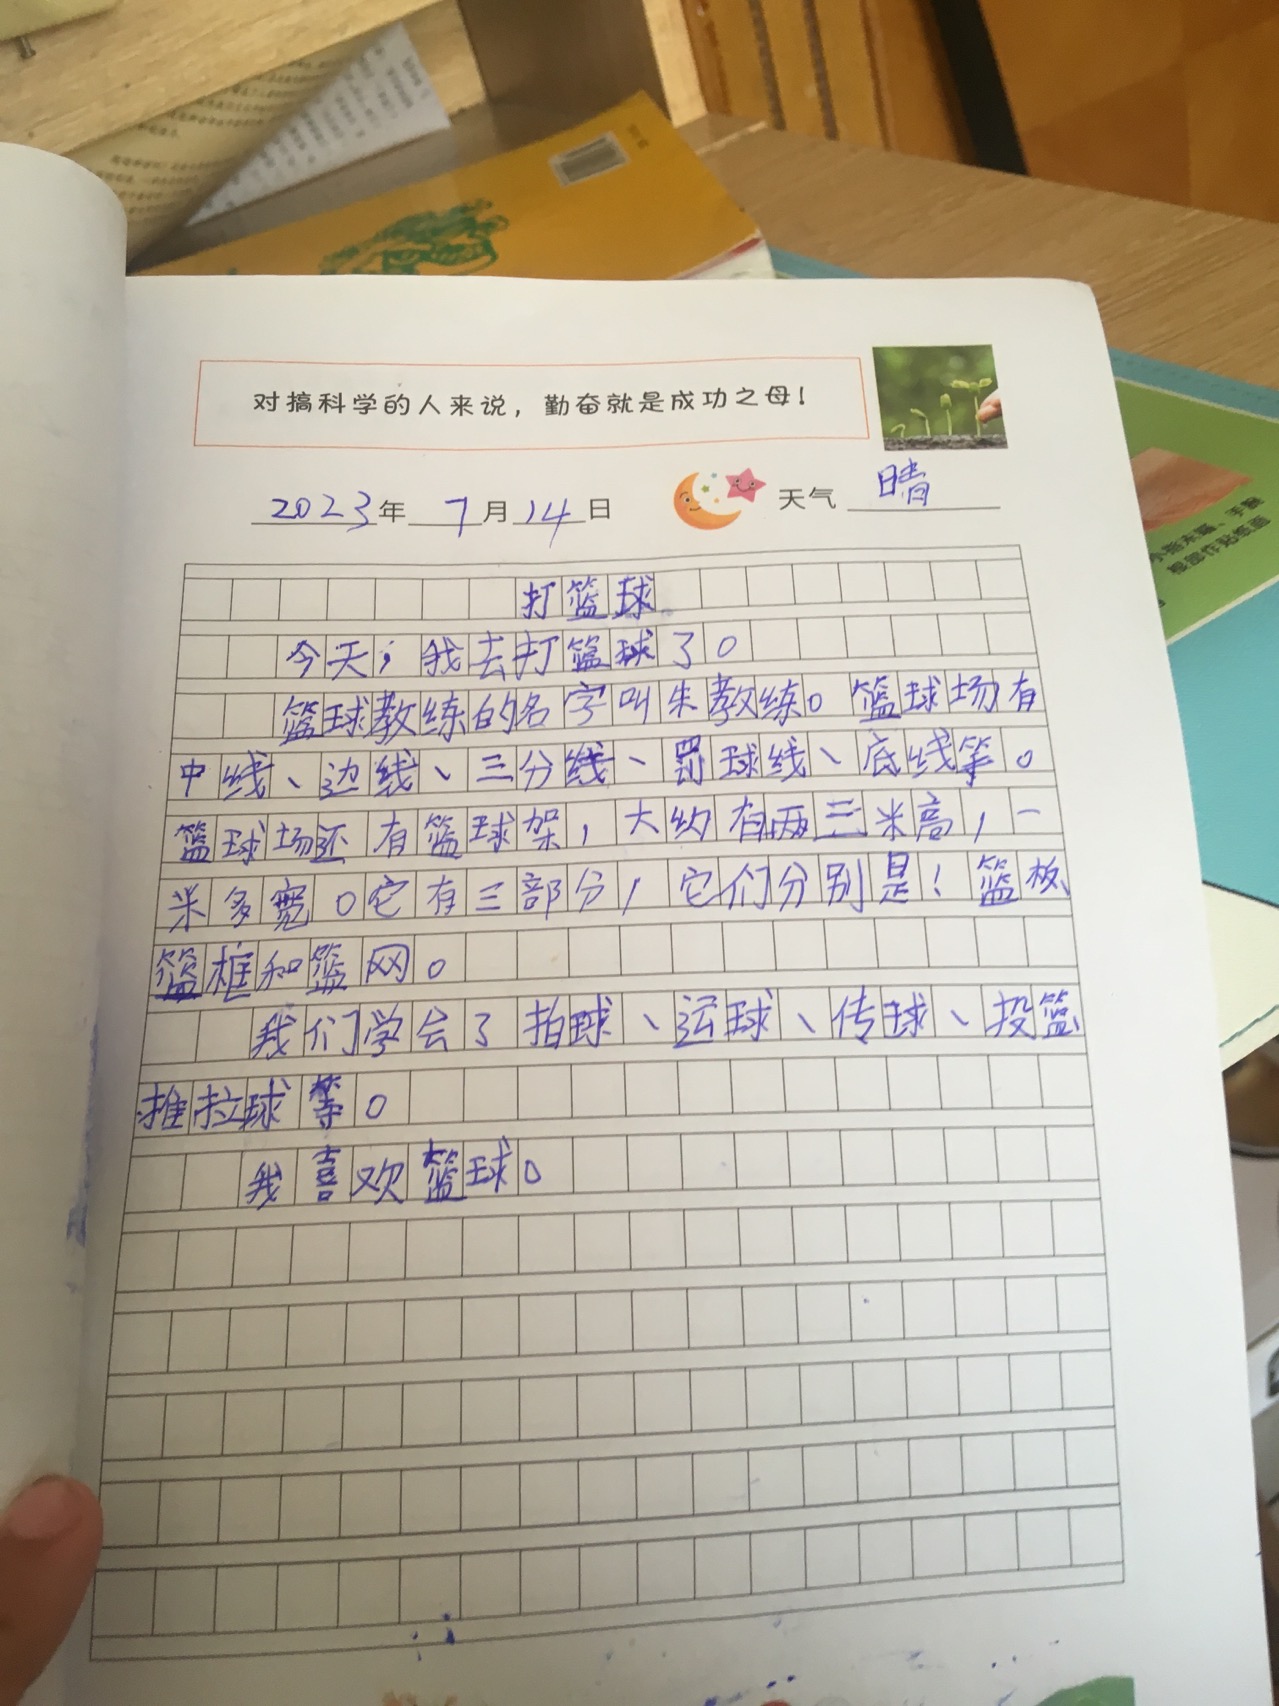 对搞科学的人来说，勤奋就是成功之母！
2023年 7月14日 天气 晴
打篮球
今天，我去打篮球了。
篮球教练的名字叫朱教练。篮球场有
中线、边线、三分线、罚球线、底线等。
篮球场还有篮球架，大约有两三米高，一
米多宽。它有三部分，它们分别是！篮板、
篮框和篮网。
我们学会了拍球、运球、传球、投篮、
推拉球等。
我喜欢篮球。
小指末端、手腕
根部作贴纸面